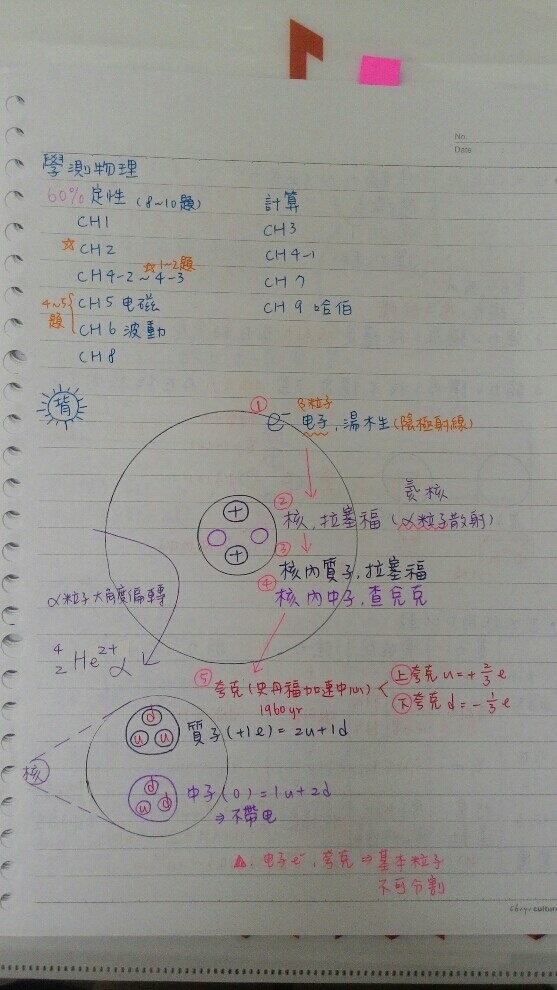 No.
Date
學測物理
60% 定性 (8~10題)
CH1
☆ CH2
☆1~2題
CH4-2 ~ 4-3
4~5題
CH5 电磁
CH6 波動
CH8
計算
CH3
CH4-1
CH7
CH9 哈伯
背
① e⁻ β粒子
电子, 湯木生 (陰極射線)
氦核
② 核, 拉塞福 (α粒子散射)
③ 核內質子, 拉塞福
④ 核內中子, 查兌克
α粒子大角度偏轉
⁴₂He²⁺ α
⑤ 夸克 (史丹福加速中心)
1960yr
上夸克 u=+2/3 e
下夸克 d=-1/3 e
核
d
u u
質子 (+1e) = 2u+1d
d
u d
中子 (0) = 1u+2d
⇒ 不帶电
▲. 电子e⁻, 夸克 ⇒ 基本粒子
不可分割